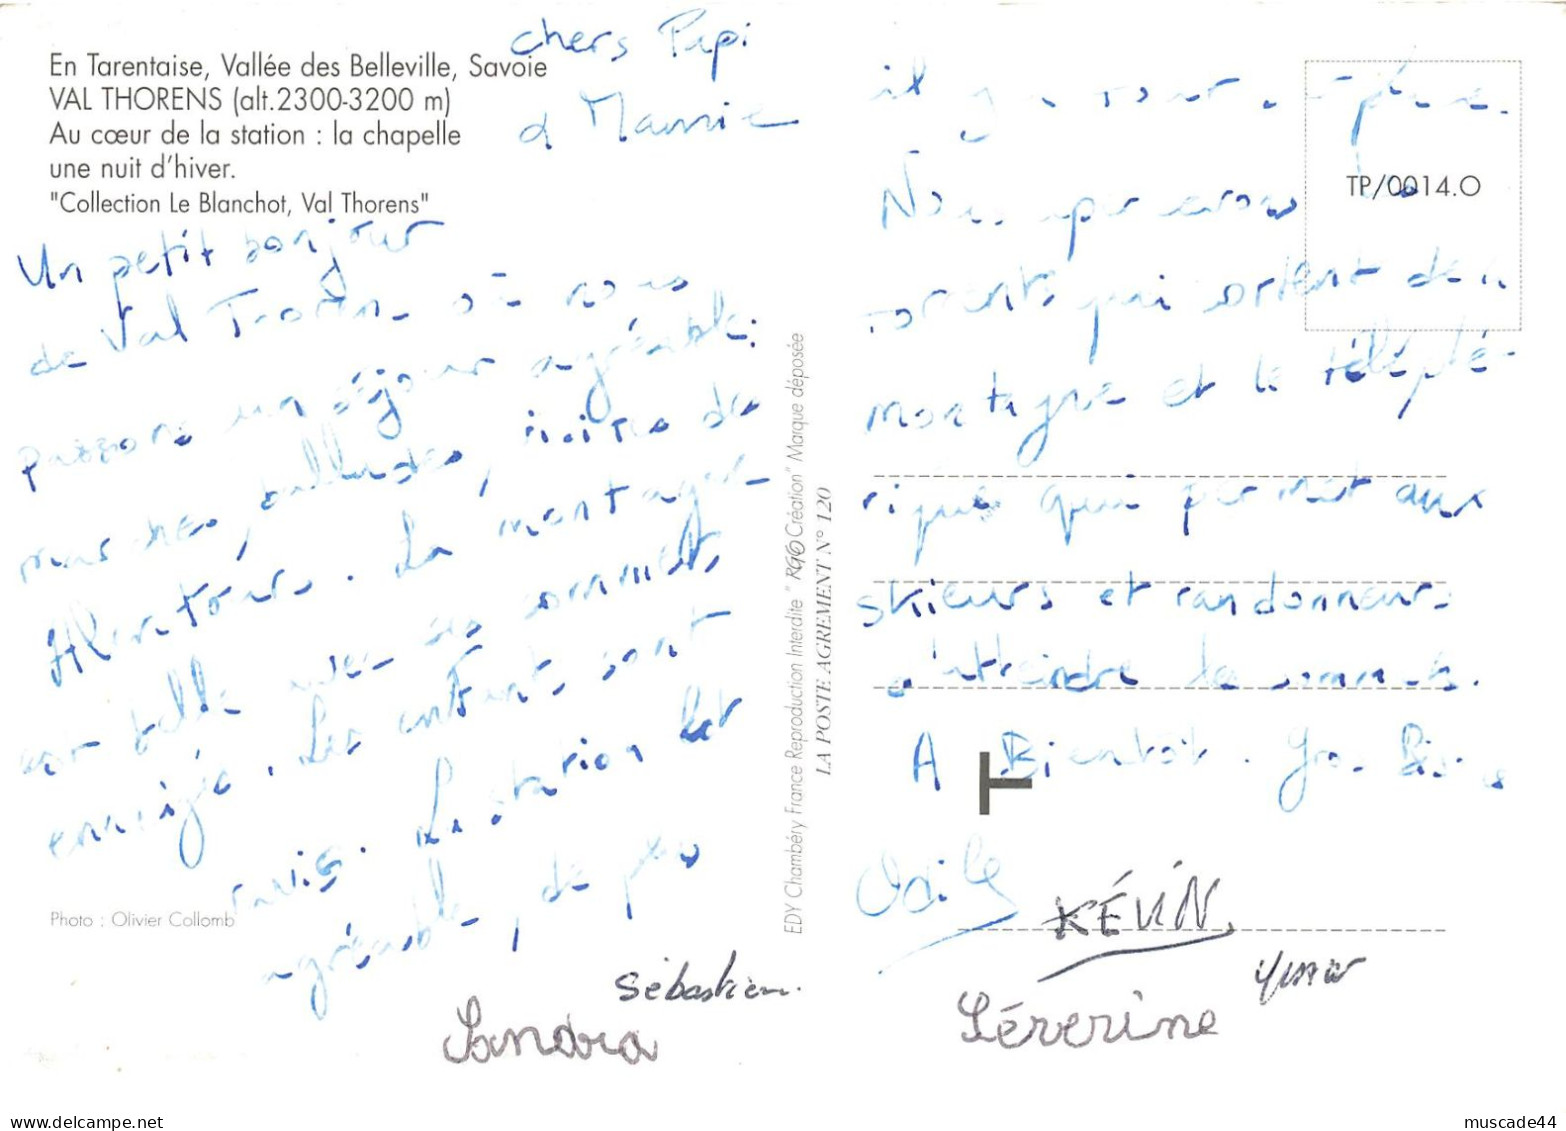 En Tarentaise, Vallée des Belleville, Savoie
VAL THORENS (alt.2300-3200 m)
Au cœur de la station : la chapelle
une nuit d'hiver.
"Collection Le Blanchot, Val Thorens"
chers Papi
et Mamie
Un petit bonjour
de Val Thorens où nous
passons un séjour agréable:
marches, ballades, visites des
Alentours. La montagne
est belle avec ses sommets
enneigés. Les enfants sont
ravis. La station est
agréable, de peu
Photo : Olivier Collomb
Sébastien.
Sandra
EDY Chambéry France Reproduction Interdite "RGO Création" Marque déposée
LA POSTE AGREMENT N° 120
TP/0014.O
il y a
Nous apercevons les
torrents qui sortent de la
montagne et le téléphé-
rique qui permet aux
skieurs et randonneurs
d'atteindre les sommets.
A Bientôt. Gros Bisous
T
Odile
KÉVIN
Séverine
muscade44